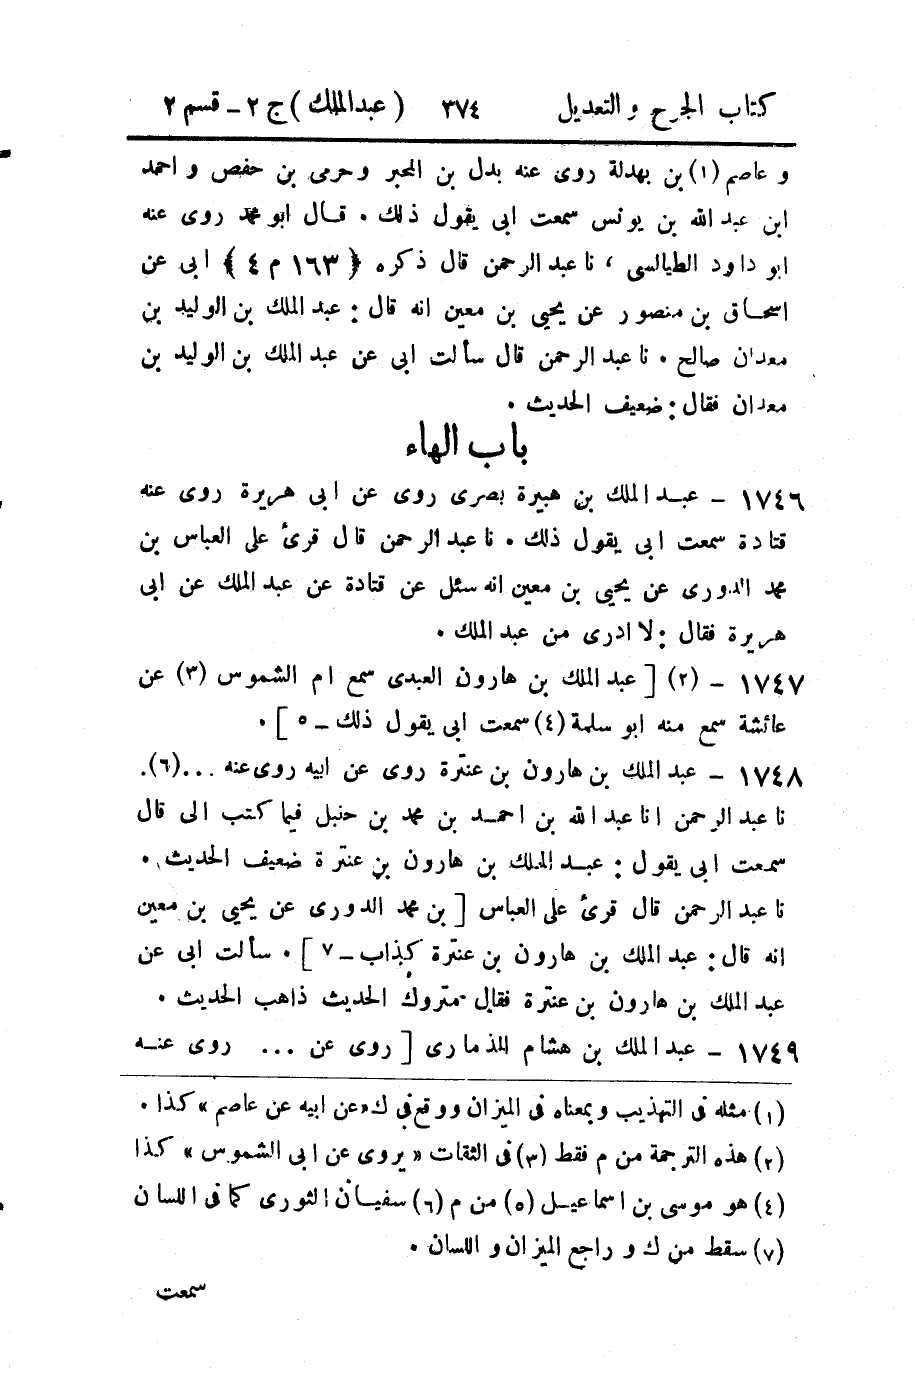 كتاب الجرح والتعديل ٣٧٤ (عبدالملك) ج ٢ - قسم ٢
و عاصم (١) بن بهدلة روى عنه بدل بن المحبر وحرمى بن حفص و احمد
ابن عبد الله بن يونس سمعت ابى يقول ذلك . قال ابو محمد روى عنه
ابو داود الطيالسى ، نا عبد الرحمن قال ذكره ﴿ ١٦٣ م ٤ ﴾ ابى عن
اسحاق بن منصور عن يحيى بن معين انه قال : عبد الملك بن الوليد بن
معدان صالح . نا عبد الرحمن قال سألت ابى عن عبد الملك بن الوليد بن
معدان فقال : ضعيف الحديث .
باب الهاء
١٧٤٦ - عبد الملك بن هبيرة بصرى روى عن ابى هريرة روى عنه
قتادة سمعت ابى يقول ذلك . نا عبد الرحمن قال قرئ على العباس بن
محمد الدورى عن يحيى بن معين انه سئل عن قتادة عن عبد الملك عن ابى
هريرة فقال : لا ادرى من عبد الملك .
١٧٤٧ - (٢) [ عبد الملك بن هارون العبدى سمع ام الشموس (٣) عن
عائشة سمع منه ابو سلمة (٤) سمعت ابى يقول ذلك - ٥ ] .
١٧٤٨ - عبد الملك بن هارون بن عنترة روى عن ابيه روى عنه ...(٦).
نا عبد الرحمن انا عبد الله بن احمد بن محمد بن حنبل فيما كتب الى قال
سمعت ابى يقول : عبد الملك بن هارون بن عنترة ضعيف الحديث .
نا عبد الرحمن قال قرئ على العباس [ بن محمد الدورى عن يحيى بن معين
انه قال : عبد الملك بن هارون بن عنترة كذاب - ٧ ] . سألت ابى عن
عبد الملك بن هارون بن عنترة فقال متروك الحديث ذاهب الحديث .
١٧٤٩ - عبد الملك بن هشام الذمارى [ روى عن ... روى عنه
(١) مثله فى التهذيب وبمعناه فى الميزان ووقع فى ك «عن ابيه عن عاصم» كذا .
(٢) هذه الترجمة من م فقط (٣) فى الثقات « يروى عن ابى الشموس » كذا
(٤) هو موسى بن اسماعيل (٥) من م (٦) سفيان الثورى كما فى اللسان
(٧) سقط من ك و راجع الميزان و اللسان .
سمعت